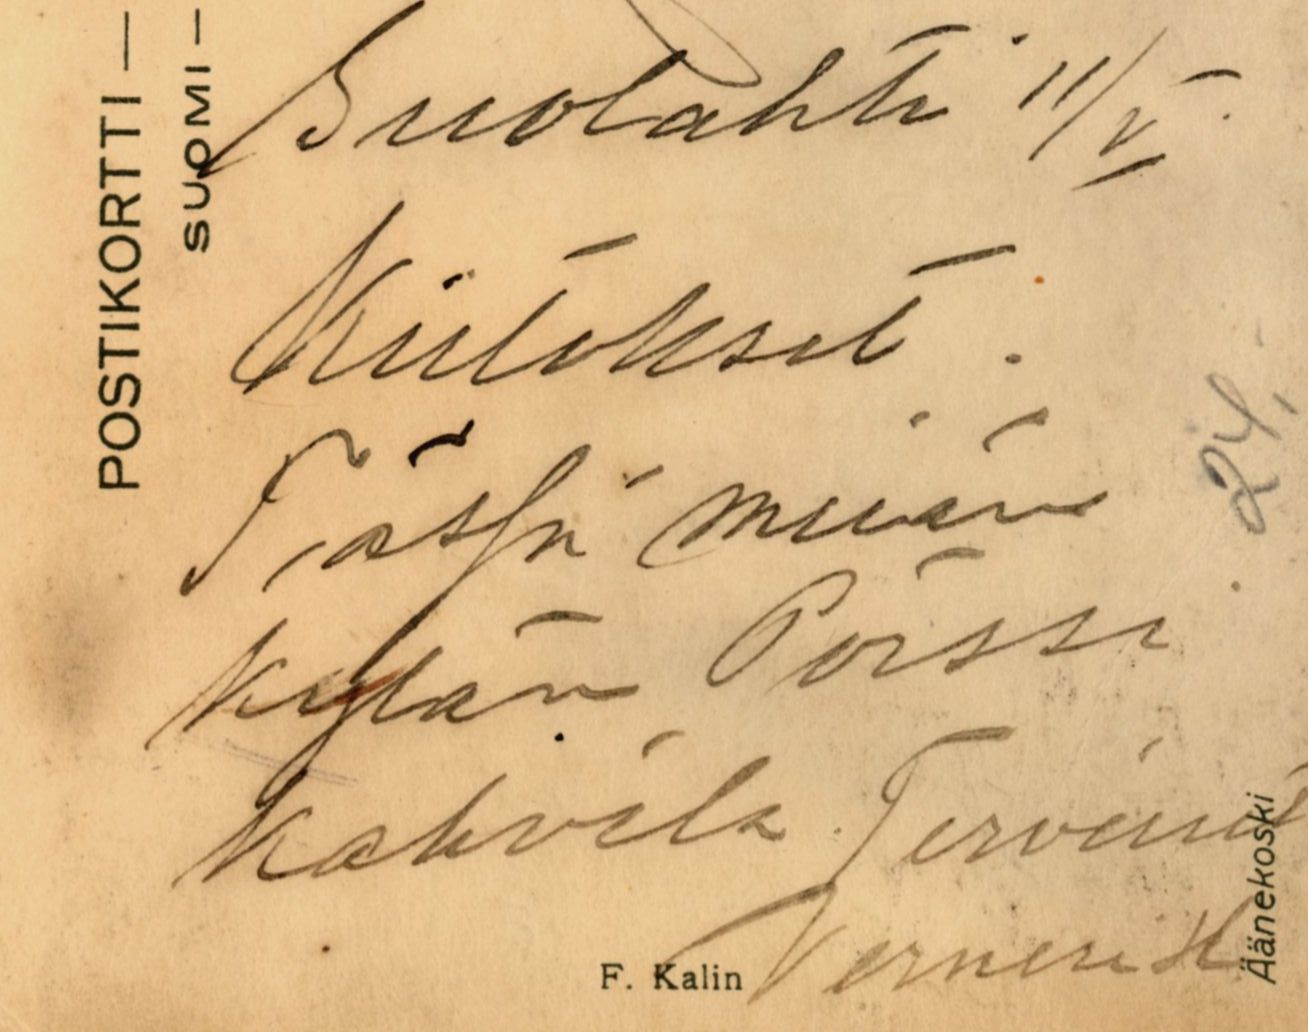 POSTIKORTTI —
SUOMI —
Suolahti 11/V.
Kiitokset.
Tässä meiän
kylän Pörssi
kahvila. Terveisiä
Verneri H
24,
F. Kalin
Äänekoski